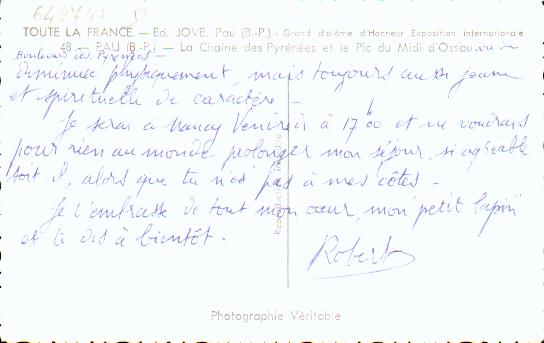 642747 D
TOUTE LA FRANCE. — Ed. JOVE, Pau (B.-P.) - Grand diplôme d'Honneur Exposition internationale
48 - PAU (B.-P.) — La Chaîne des Pyrénées et le Pic du Midi d'Ossau. vu du
Boulevard des Pyrénées -
diminuée physiquement, mais toujours aussi jeune
et spirituelle de caractère -
Je serai à Nancy Vendredi à 17h00 et ne voudrais
pour rien au monde prolonger mon séjour, si agréable
soit il, alors que tu n'es pas à mes côtés.
Je t'embrasse de tout mon cœur, mon petit lapin
et te dis à bientôt.
Robert
Photographie Véritable